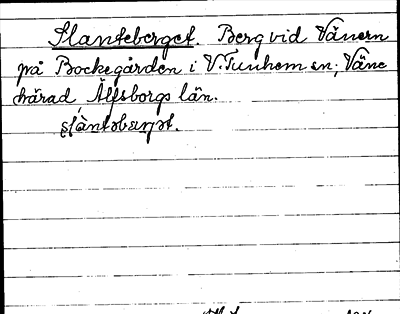 Slanteberget. Berg vid Vänern
på Bockegården i V. Tunhem sn, Väne
härad, Älfsborgs län.